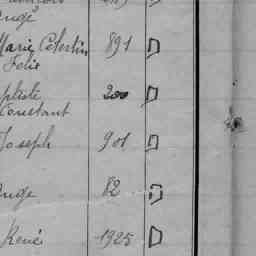 Marie Celestin 891 D
Felie
200 D
Constant
Joseph 901 D
82 D
René 1925 D